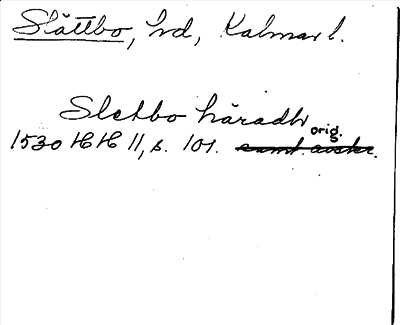 Slättbo, hd, Kalmar l.
Sletbo häradh
orig.
1530 HH II, s. 101. samt. avskr.